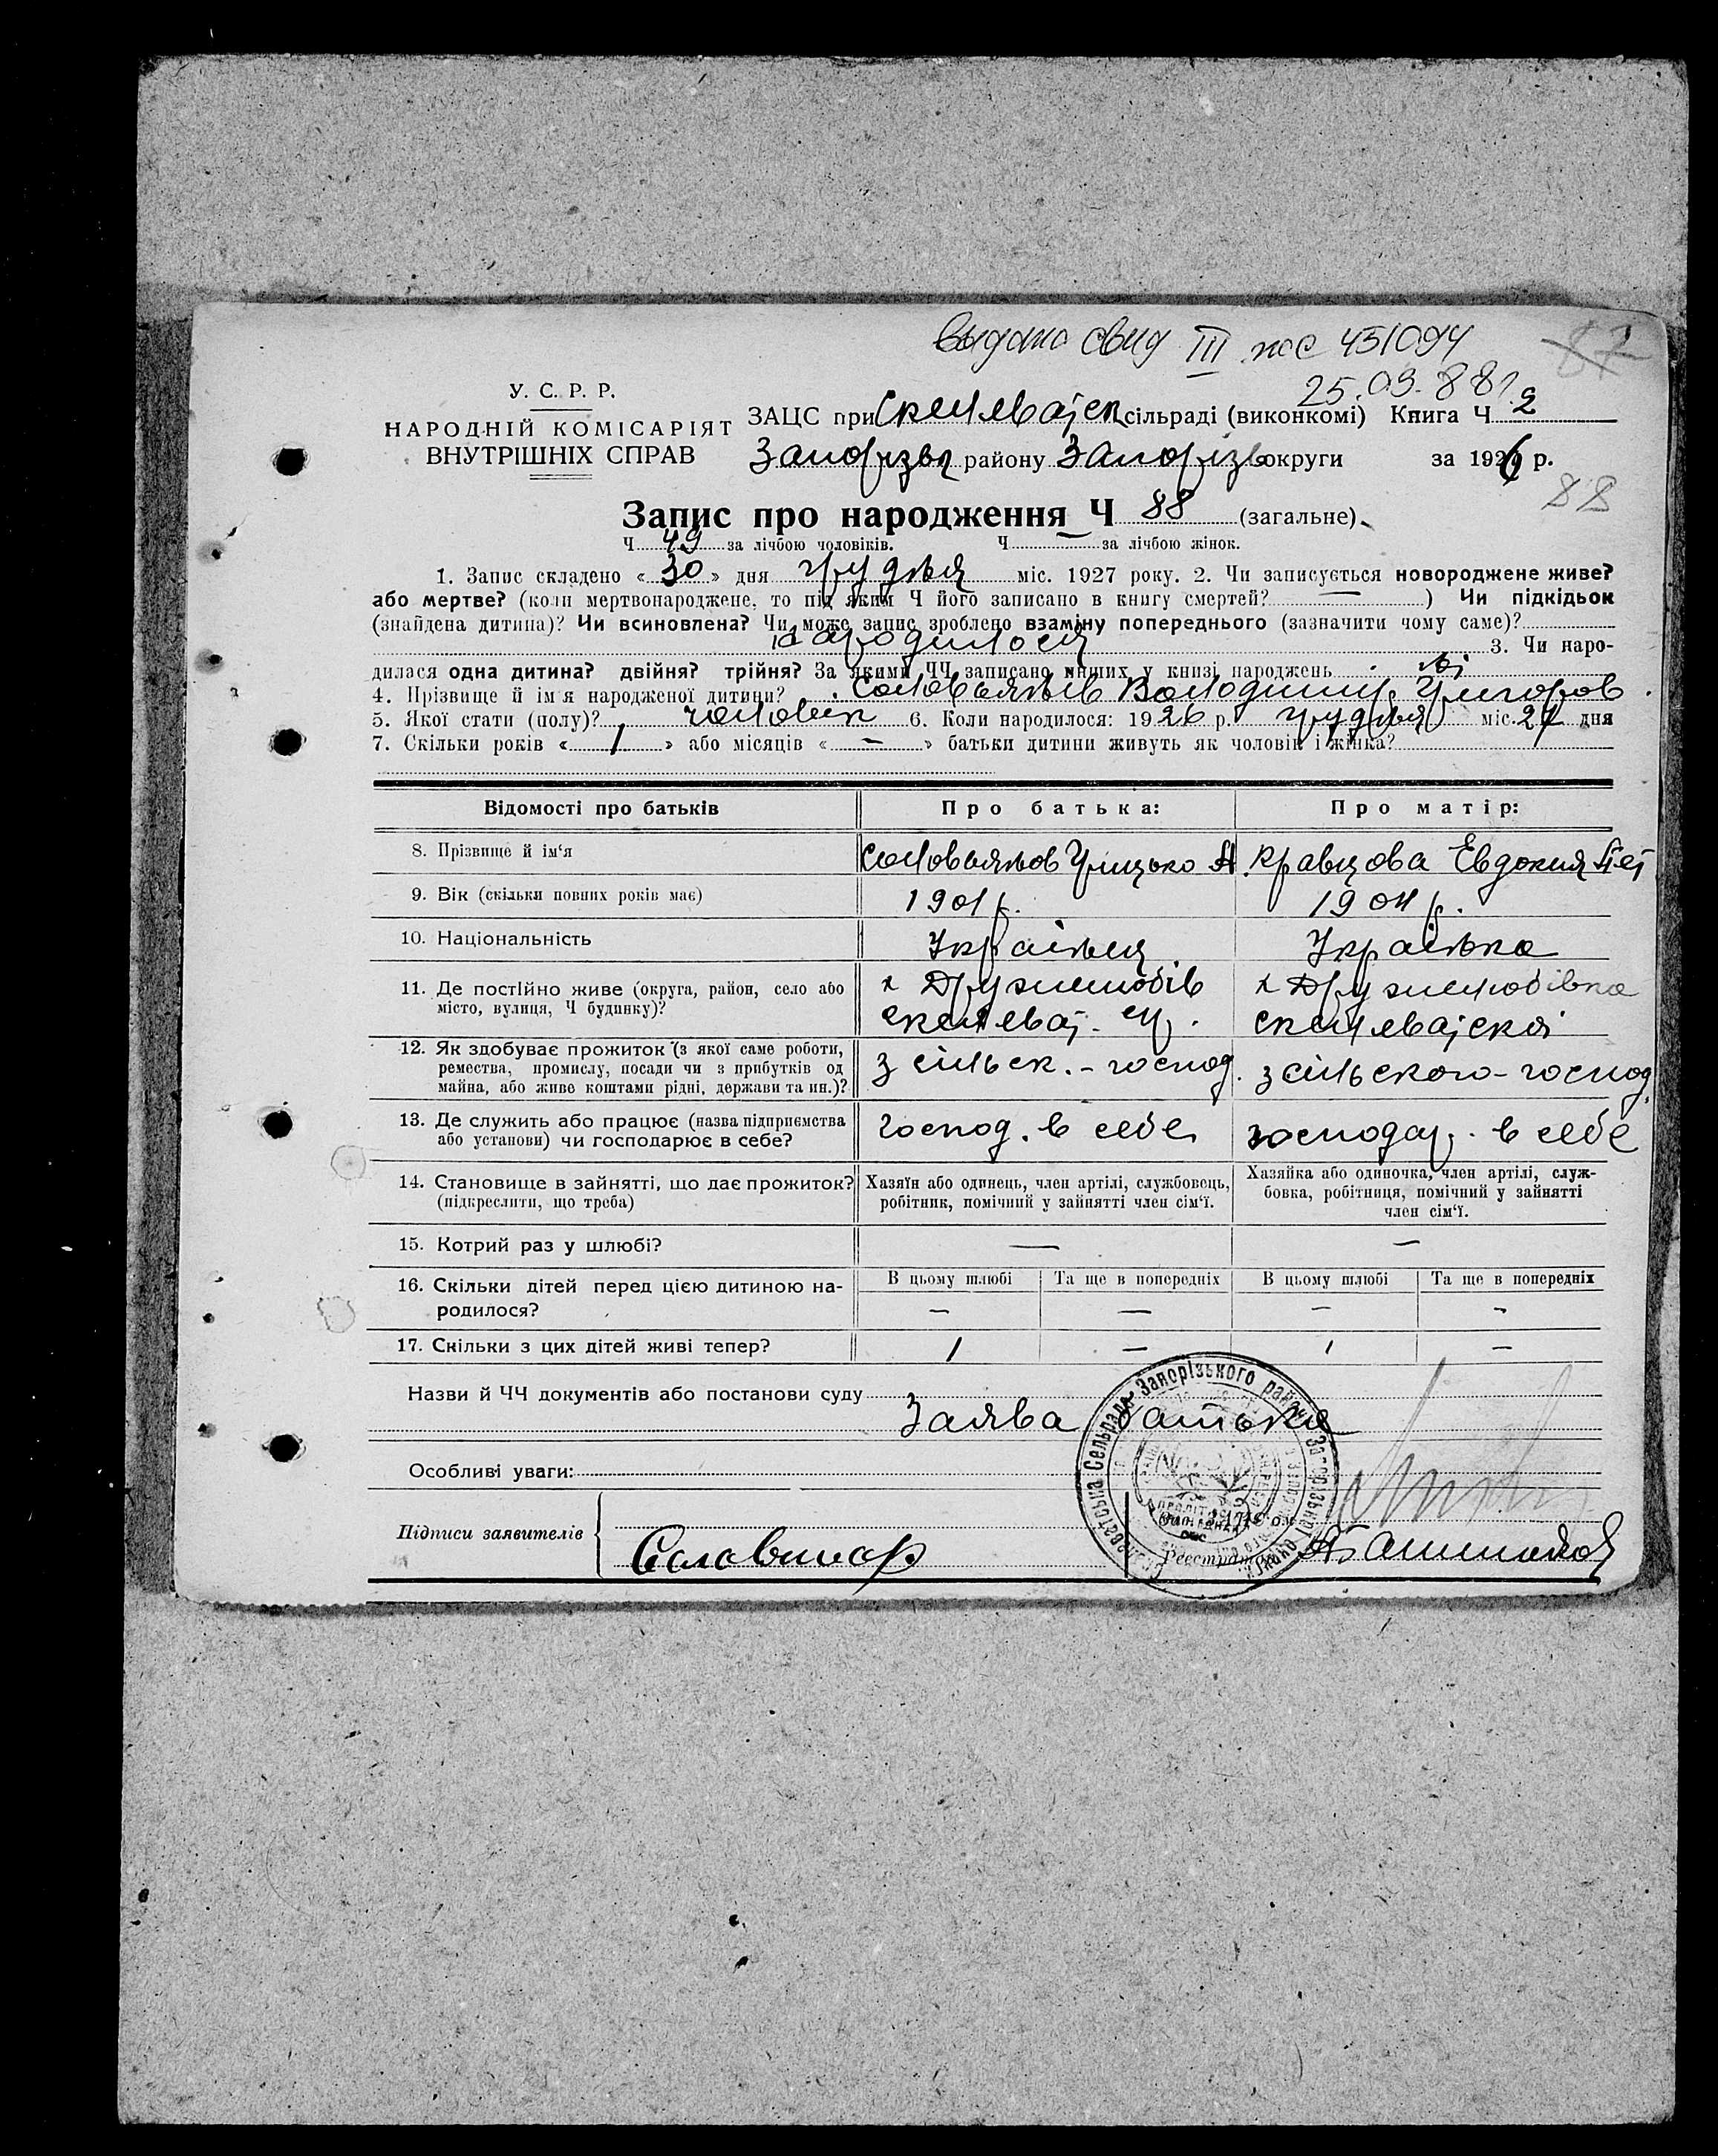 выдано свид III пос 451094
25.03.88г.
87
У. С. Р. Р.
НАРОДНІЙ КОМІСАРІЯТ
ВНУТРІШНІХ СПРАВ
ЗАЦС при Скелеват сільраді (виконкомі) Книга Ч 2
Запорізьк району Запорізь округи за 1926 р.
88
Запис про народження Ч 88 (загальне)
Ч 49 за лічбою чоловіків. Ч — за лічбою жінок.
1. Запис складено « 30 » дня грудня міс. 1927 року. 2. Чи записується новороджене живе?
або мертве? (коли мертвонароджене, то під яким Ч його записано в книгу смертей? — ) Чи підкідьок
(знайдена дитина)? Чи всиновлена? Чи може запис зроблено взаміну попереднього (зазначити чому саме)?
народилося 3. Чи наро-
дилася одна дитина? двійня? трійня? За якими ЧЧ записано инших у книзі народжень
4. Прізвище й ім'я народженої дитини? Володимир Григоров
5. Якої стати (полу)? чоловік 6. Коли народилося: 1926 р. грудня міс. 27 дня
7. Скільки років « 1 » або місяців « — » батьки дитини живуть як чоловік і жінка?
Відомості про батьків Про батька: Про матір:
8. Прізвище й ім'я Грицько А Кравцова Евдокия Пет
9. Вік (скільки повних років має) 1901 р. 1904 р.
10. Національність Українец Українка
11. Де постійно живе (округа, район, село або х Дружелюбів х Дружелюбівка
місто, вулиця, Ч будинку)? скелеват. ср. скелеватскоі
12. Як здобуває прожиток (з якої саме роботи, з сільск. - господ. з сільского - господ.
ремества, промислу, посади чи з прибутків од
майна, або живе коштами рідні, держави та ин.)?
13. Де служить або працює (назва підприємства господ. в себе господар. в себе
або установи) чи господарює в себе?
14. Становище в зайнятті, що дає прожиток? Хазяїн або одинець, член артілі, службовець, Хазяйка або одиночка, член артілі, служ-
(підкреслити, що треба) робітник, помічний у зайнятті член сім'ї. бовка, робітниця, помічний у зайнятті
член сім'ї.
15. Котрий раз у шлюбі? — —
16. Скільки дітей перед цією дитиною на- В цьому шлюбі Та ще в попередніх В цьому шлюбі Та ще в попередніх
родилося? — — — -
17. Скільки з цих дітей живі тепер? 1 — 1 —
Назви й ЧЧ документів або постанови суду
Заява батька
Особливі уваги:
Підписи заявителів
Реєстратор
Сельрада Запорізького району Запорізької округи